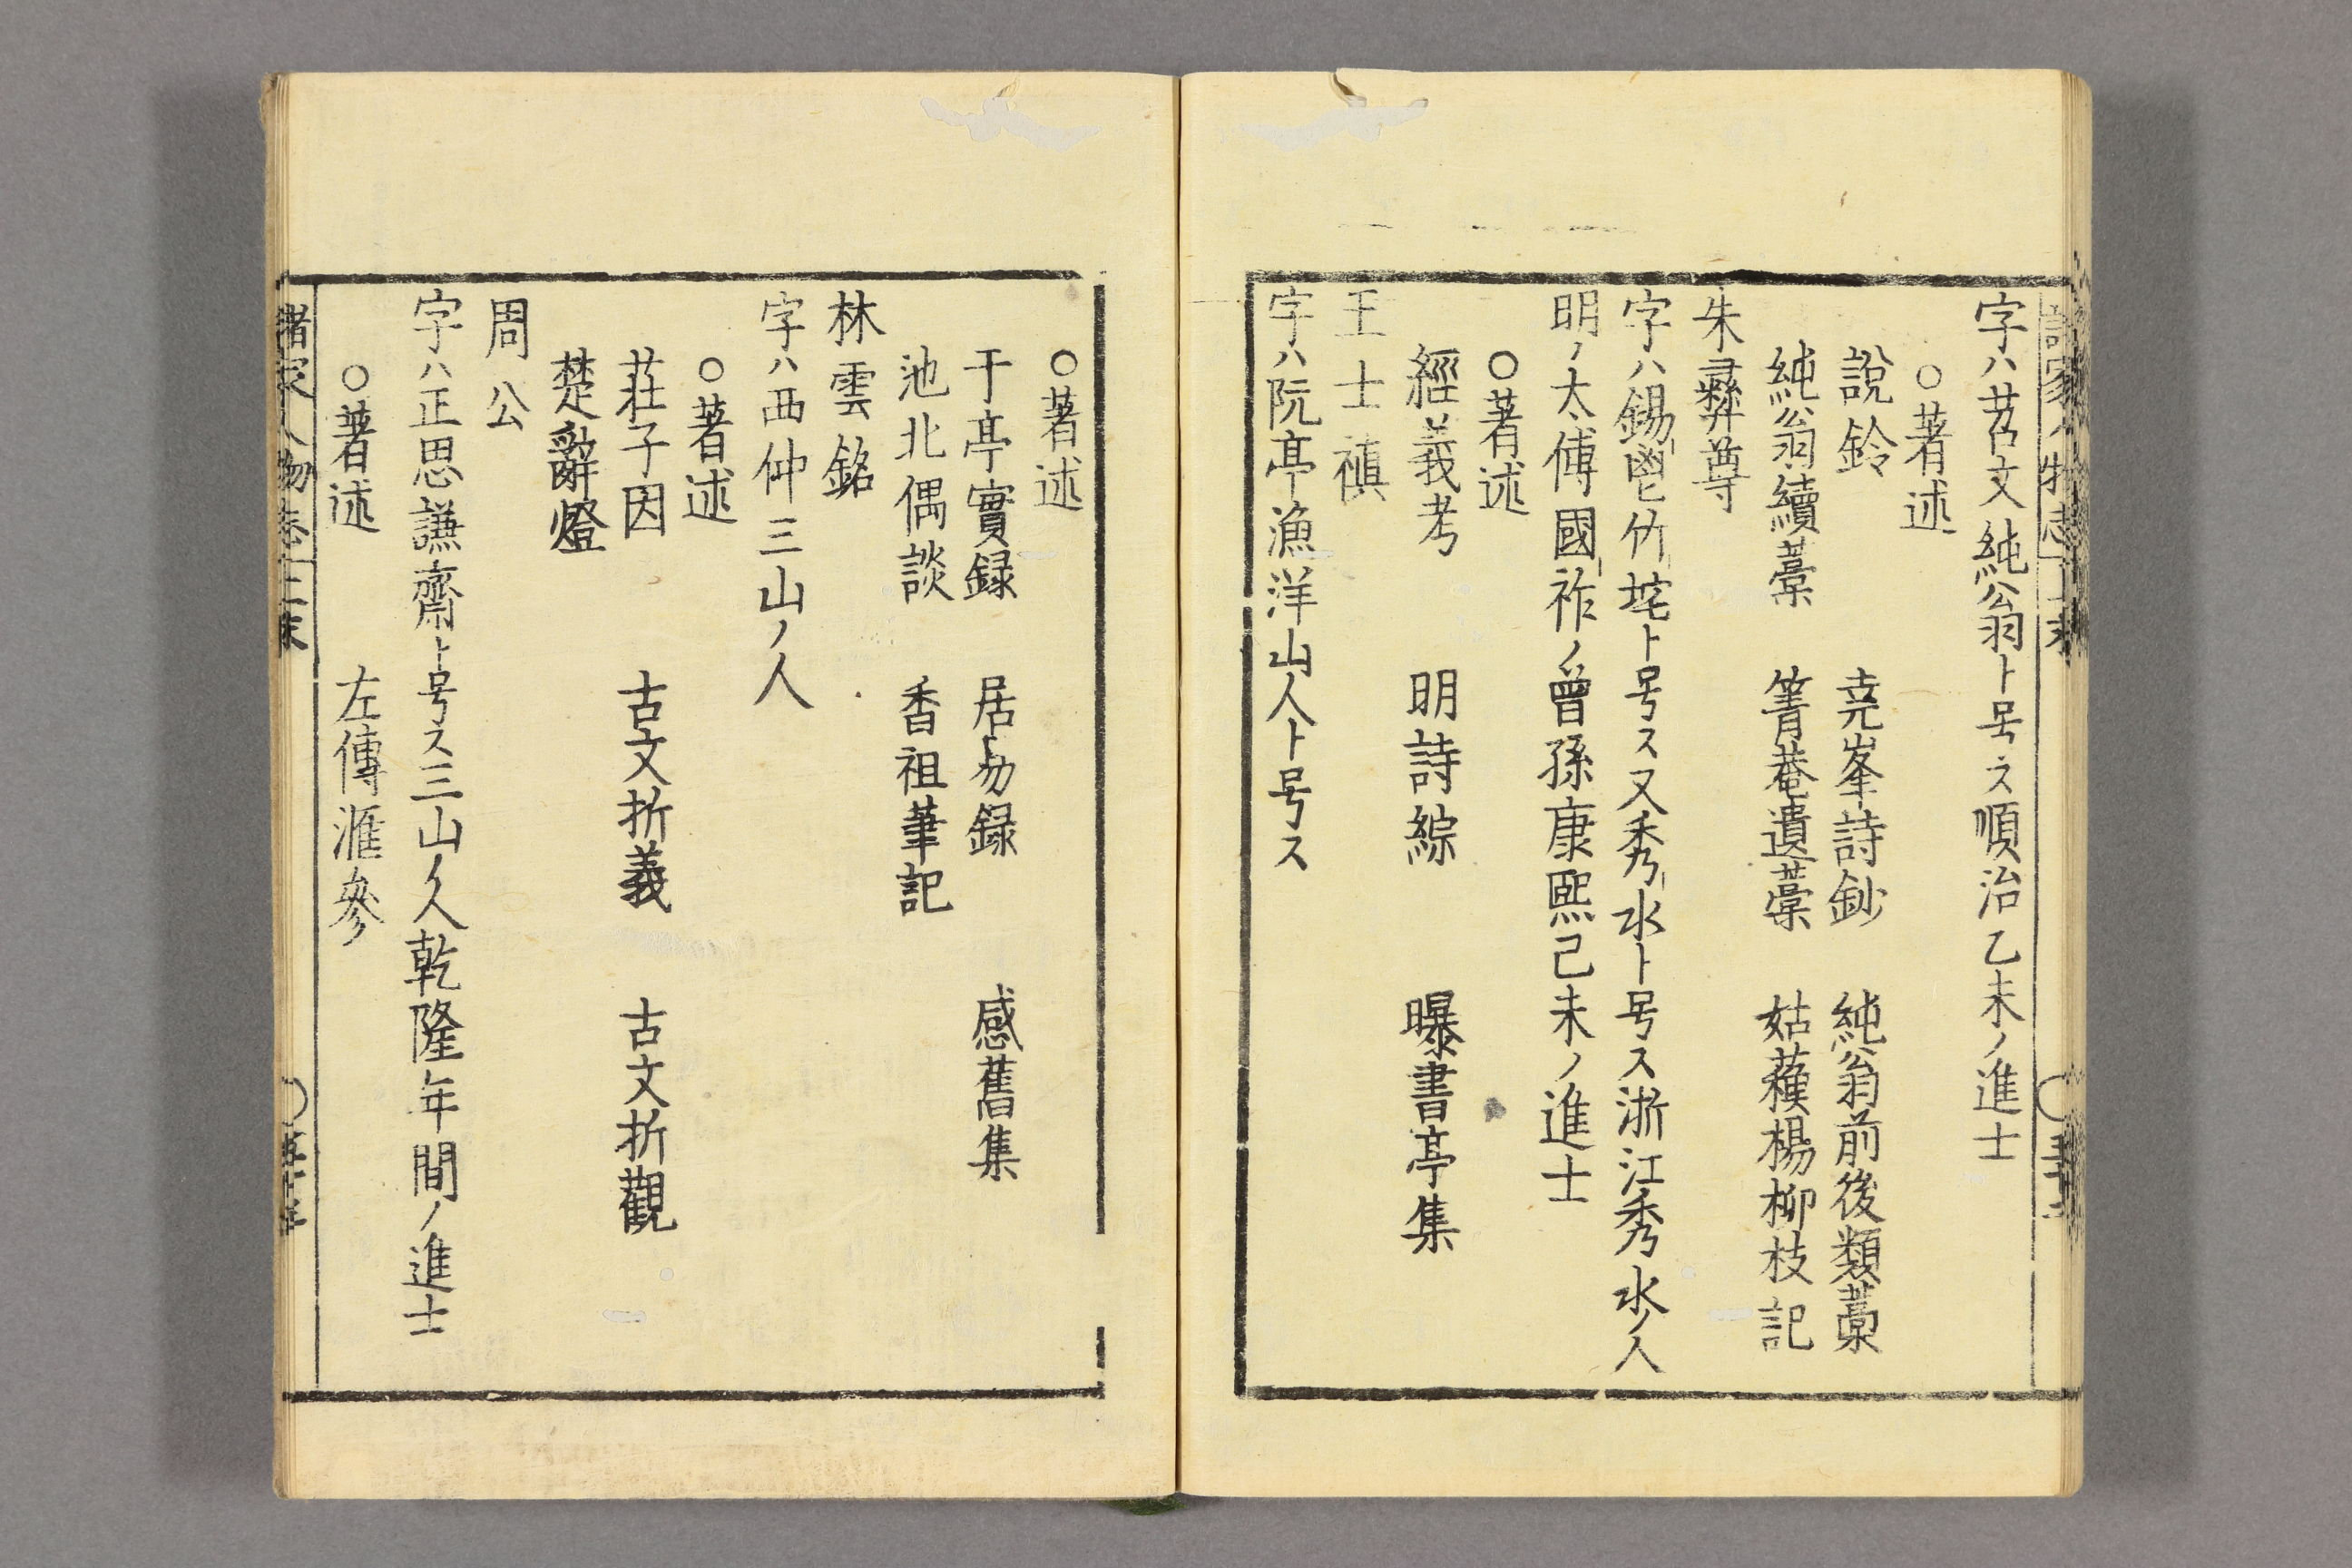 字ハ苕文純翁ト号ス順治乙未ノ進士
○著述
說鈴　尭峯詩鈔　純翁前後類藁
純翁續藁　箐菴遺藁　姑蘓楊柳枝記
朱彛尊
字ハ錫鬯竹垞ト号ス又秀水ト号ス浙江秀水ノ人
明ノ太傅國祚ノ曾孫康熙己未ノ進士
○著述
經義考　明詩綜　曝書亭集
王士禛
字ハ阮亭漁洋山人ト号ス
○著述
干亭實録　居易録　感舊集
池北偶談　香祖筆記
林雲銘
字ハ西仲三山ノ人
○著述
荘子因　古文折義　古文折觀
楚辭燈
周公
字ハ正思謙齋ト号ス三山ノ人乾隆年間ノ進士
○著述
左傳滙參
諸家人物志